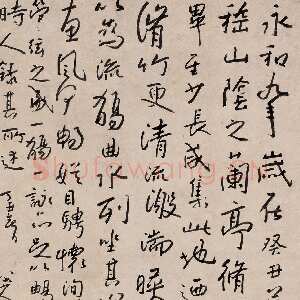 永和九年歲在癸丑
稽山陰之蘭亭脩
畢至少長咸集此地迺
脩竹更清流激湍暎
以為流觴曲水列坐其
惠風和暢娛目騁懷洵
管弦之盛一觴一詠亦足以暢
時人錄其所述